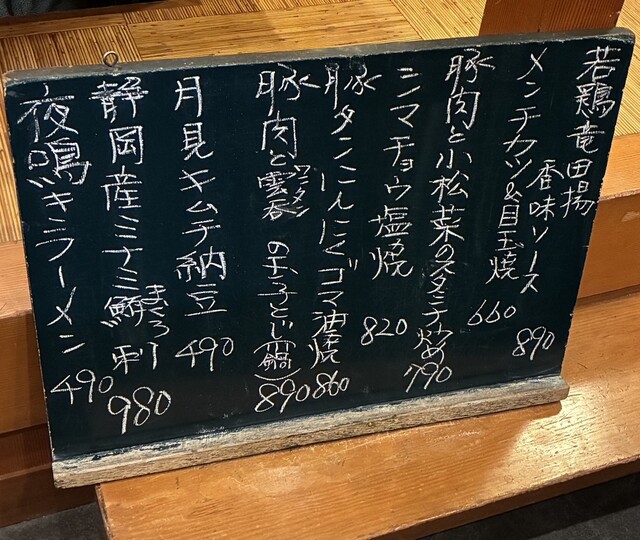 若鶏竜田揚
香味ソース 890
メンチカツ&目玉焼 660
豚肉と小松菜のスタミナ炒め 790
シマチョウ塩焼 820
豚タンにんにくゴマ油焼 860
豚肉と雲呑ワンタンの玉子とじ(鍋) 890
月見キムチ納豆 490
静岡産ミナミ鮪まぐろ刺 980
夜鳴きラーメン 490